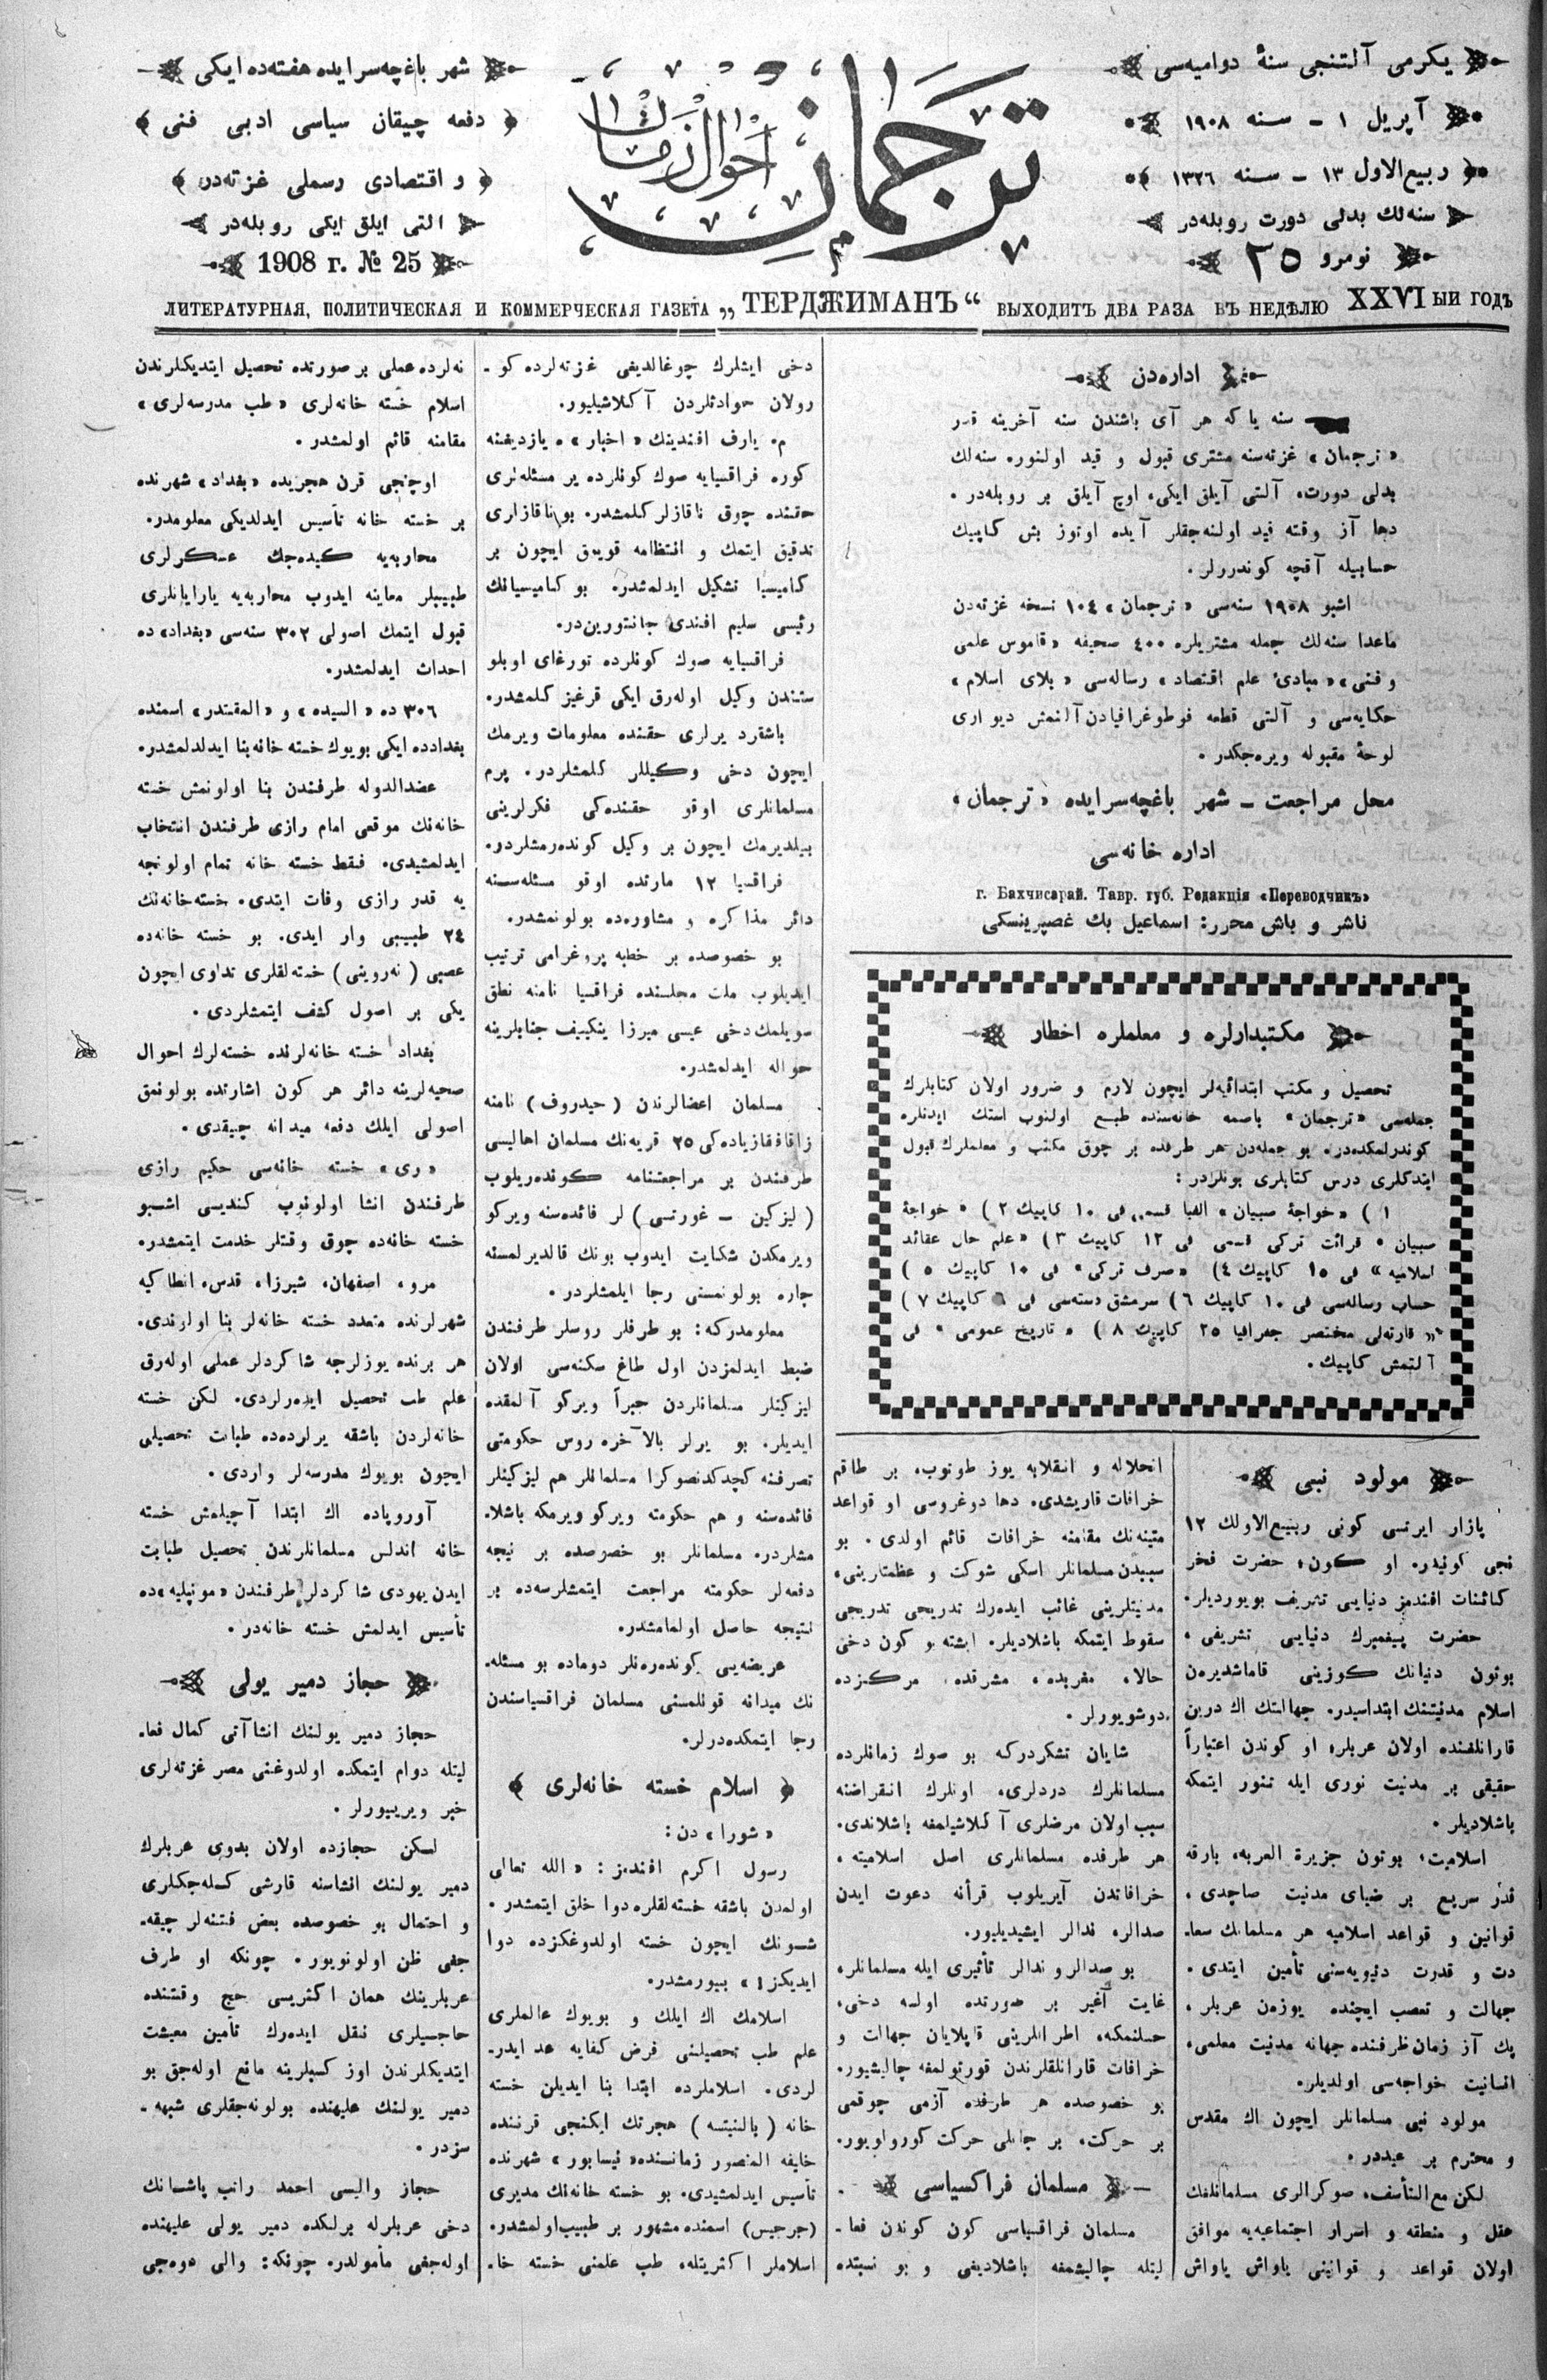 يكرمى آلتنجى سنۀ دواميه‌سى
آپريل ١ ـ سنه ١٩٠٨
ربيع‌الاول ١٣ ـ سنه ١٣٢٦
سنه‌لك بدلى دورت روبله‌در
نومرو ٢٥
ترجمان
احوال زمان
شهر باغچه‌سرايده هفته‌ده ايكى
دفعه چيقان سياسى ادبى فنى
و اقتصادى رسملى غزته‌در
التى ايلق ايكى روبله‌در
1908 г. № 25
ЛИТЕРАТУРНАЯ, ПОЛИТИЧЕСКАЯ И КОММЕРЧЕСКАЯ ГАЗЕТА „ТЕРДЖИМАНЪ“ ВЫХОДИТЪ ДВА РАЗА ВЪ НЕДѢЛЮ XXVI ЫЙ ГОДЪ
اداره‌دن
سنه يا كه هر آى باشندن سنه آخرينه قدر
«ترجمان» غزته‌سنه مشترى قبول و قيد اولنور. سنه‌لك
بدلى دورت، آلتى آيلق ايكى، اوچ آيلق بر روبله‌در.
دها آز وقته قيد اولنه‌جقلر آيده اوتوز بش كاپيك
حسابيله آقچه كوندررلر.
اشبو ١٩٠٨ سنه‌سى «ترجمان» ١٠٤ نسخه غزته‌دن
ماعدا سنه‌لك جمله مشتريلره ٤٠٠ صحيفه «قاموس علمى
و فنى» «مبادئ علم اقتصاد» رساله‌سى «بلاى اسلام»
حكايه‌سى و آلتى قطعه فوطوغرافيادن آلنمش ديوارى
لوحۀ مقبوله ويره‌جكدر.
محل مراجعت ـ شهر باغچه‌سرايده «ترجمان»
اداره خانه‌سى
г. Бахчисарай. Тавр. губ. Редакція «Переводчикъ»
ناشر و باش محرر: اسماعيل بك غصپرينسكى
مكتبدارلره و معلملره اخطار
تحصيل و مكتب ابتدائيه‌لر ايچون لازم و ضرور اولان كتابلرك
جمله‌سى «ترجمان» باصمه خانه‌سنده طبع اولنوب استك ايدنلره
كوندرلمكده‌در. بو جمله‌دن هر طرفده بر چوق مكتب و معلملرك قبول
ايتدكلرى درس كتابلرى بونلردر:
١) «خواجۀ صبيان» الفبا قسمى فى ١٠ كاپيك ٢) «خواجۀ
صبيان» قرائت تركى قسمى فى ١٢ كاپيك ٣) «علم حال عقائد
اسلاميه» فى ١٥ كاپيك ٤) «صرف تركى» فى ١٠ كاپيك ٥)
حساب رساله‌سى فى ١٠ كاپيك ٦) سرمشق دسته‌سى فى ٦ كاپيك ٧)
«قارته‌لى مختصر جغرافيا ٢٥ كاپيك ٨) «تاريخ عمومى» فى
آلتمش كاپيك.
مولود نبى
پازار ايرتسى كونى ربيع‌الاولك ١٢
نجى كونيدر. او كون، حضرت فخر
كائنات افندمز دنيايى تشريف بويورديلر.
حضرت پيغمبرك دنيايى تشريفى،
بوتون دنيانك كوزينى قاماشديرەن
اسلام مدنيتنك ابتداسيدر. جهالتك اك درين
قارانلغنده اولان عربلر، او كوندن اعتباراً
حقيقى بر مدنيت نورى ايله تنور ايتمكه
باشلاديلر.
اسلاميت، بوتون جزيرة العربه، بارقه
قدر سريع بر ضياى مدنيت صاچدى،
قوانين و قواعد اسلاميه هر مسلمانك سعا-
دت و قدرت دنيويه‌سنى تأمين ايتدى.
جهالت و تعصب ايچنده يوزەن عربلر،
پك آز زمان ظرفنده جهانه مدنيت معلمى،
انسانيت خواجه‌سى اولديلر.
مولود نبى مسلمانلر ايچون اك مقدس
و محترم بر عيددر.
لكن مع التأسف، صوكرالرى مسلمانلغك
عقل و منطقه و اسرار اجتماعيه‌يه موافق
اولان قواعد و قوانينى ياواش ياواش
انحلاله و انقلابه يوز طوتوب، بر طاقم
خرافات قاريشدى، دها دوغروسى او قواعد
متينه‌نك مقامنه خرافات قائم اولدى. بو
سببدن مسلمانلر اسكى شوكت و عظمتلرينى،
مدنيتلرينى غائب ايدەرك تدريجى تدريجى
سقوط ايتمكه باشلاديلر. ايشته بو كون دخى
حالا، مغربده، مشرقده، مركزده
دوشويورلر.
شايان تشكردركه بو صوك زمانلرده
مسلمانلرك دردلرى، اونلرك انقراضنه
سبب اولان مرضلرى آكلاشيلمغه باشلاندى.
هر طرفده مسلمانلرى اصل اسلاميته،
خرافاتدن آيريلوب قرأنه دعوت ايدن
صدالر، ندالر ايشيديليور.
بو صدالر و ندالر تأثيرى ايله مسلمانلر،
غايت آغير بر صورتده اولسه دخى،
سلكنمكه، اطرافلرينى قاپلايان جهالت و
خرافات قارانلقلرندن قورتولمغه چاليشيور.
بو خصوصده هر طرفده آزمى چوقمى
بر حركت، بر جانلى حركت كورولويور.
مسلمان فراكسياسى
مسلمان فراقسياسى كون كوندن فعا-
ليتله چاليشمغه باشلاديغى و بو نسبتده
دخى ايشلرك چوغالديغى غزته‌لرده كو-
رولان حوادثلردن آكلاشيليور.
م. يارف افندينك «اخبار» ه يازديغنه
كوره فراقسيايه صوك كونلرده ير مسئله‌لرى
حقنده چوق ناقازلر كلمشدر. بو ناقازلرى
تدقيق ايتمك و انتظامه قويمق ايچون بر
كاميسيا تشكيل ايدلمشدر. بو كاميسيانك
رئيسى سليم افندى جانتورين‌در.
فراقسيايه صوك كونلرده تورغاى اوبلو
ستندن وكيل اوله‌رق ايكى قرغيز كلمشدر.
باشقرد يرلرى حقنده معلومات ويرمك
ايچون دخى وكيللر كلمشلردر. پرم
مسلمانلرى اوقو حقنده‌كى فكرلرينى
بيلديرمك ايچون بر وكيل كوندەرمشلردر.
فراقسيا ١٢ مارتده اوقو مسئله‌سنه
دائر مذاكره و مشاوره‌ده بولونمشدر.
بو خصوصده بر خطبه پروغرامى ترتيب
ايديلوب ملت مجلسنده فراقسيا نامنه نطق
سويلمك دخى عيسى ميرزا ينكييف جنابلرينه
حواله ايدلمشدر.
مسلمان اعضالرندن (حيدروف) نامنه
زاقافقازياده‌كى ٢٥ قريه‌نك مسلمان اهاليسى
طرفندن بر مراجعتنامه كوندەريلوب
(ليزكين ـ غورتسى) لر فائده‌سنه ويركو
ويرمكدن شكايت ايدوب بونك قالديرلمسنه
چاره بولونمسنى رجا ايلمشلردر.
معلومدركه: بو طرفلر روسلر طرفندن
ضبط ايدلمزدن اول طاغ سكنه‌سى اولان
ليزكينلر مسلمانلردن جبراً ويركو آلمقده
ايديلر. بو يرلر بالآخره روس حكومتى
تصرفنه كچدكدنصوكرا مسلمانلر هم ليزكينلر
فائده‌سنه و هم حكومته ويركو ويرمكه باشلا-
مشلردر. مسلمانلر بو خصوصده بر نيجه
دفعه‌لر حكومته مراجعت ايتمشلرسه‌ده بر
نتيجه حاصل اولمامشدر.
عريضه‌يى كوندەرەنلر دوماده بو مسئله-
نك ميدانه قونلمسنى مسلمان فراقسياسندن
رجا ايتمكده‌درلر.
اسلام خسته خانه‌لرى
«شورا» دن:
رسول اكرم افندمز: «الله تعالى
اولمدن باشقه خسته‌لقلره دوا خلق ايتمشدر.
شونك ايچون خسته اولدوغكزده دوا
ايديكز!» بيورمشدر.
اسلامك اك ايلك و بويوك عالملرى
علم طب تحصيلنى فرض كفايه عد ايدر-
لردى. اسلاملرده ابتدا بنا ايديلن خسته
خانه (بالنيتسه) هجرتك ايكنجى قرننده
خليفه المنصور زمانسنده «نيسابور» شهرنده
تأسيس ايدلمشيدى. بو خسته خانه‌نك مديرى
(جرجيس) اسمنده مشهور بر طبيب اولمشدر.
اسلاملر اكثريتله، طب علمنى خسته خا-
نه‌لرده عملى بر صورتده تحصيل ايتديكلرندن
اسلام خسته خانه‌لرى «طب مدرسه‌لرى»
مقامنه قائم اولمشدر.
اوچنجى قرن هجريده «بغداد» شهرنده
بر خسته خانه تأسيس ايدلديكى معلومدر.
محاربه‌يه كيده‌جك عسكرلرى
طبيبلر معاينه ايدوب محاربه‌يه يارايانلرى
قبول ايتمك اصولى ٣٠٢ سنه‌سى «بغداد» ده
احداث ايدلمشدر.
٣٠٦ ده «السيده» و «المقتدر» اسمنده
بغدادده ايكى بويوك خسته خانه بنا ايدلدلمشدر.
عضدالدوله طرفندن بنا اولونمش خسته
خانه‌نك موقعى امام رازى طرفندن انتخاب
ايدلمشيدى. فقط خسته خانه تمام اولونجه
يه قدر رازى وفات ايتدى. خسته‌خانه‌نك
٢٤ طبيبى وار ايدى. بو خسته خانه‌ده
عصبى (نەروينى) خسته‌لقلرى تداوى ايچون
يكى بر اصول كشف ايتمشلردى.
بغداد خسته خانه‌لرنده خسته‌لرك احوال
صحيه‌لرينه دائر هر كون اشارتده بولونمق
اصولى ايلك دفعه ميدانه چيقدى.
«رى» خسته خانه‌سى حكيم رازى
طرفندن انشا اولونوب كنديسى اشبو
خسته خانه‌ده چوق وقتلر خدمت ايتمشدر.
مرو، اصفهان، شيراز، قدس، انطاكيه
شهرلرنده متعدد خسته خانه‌لر بنا اولوندى.
هر برنده يوزلرجه شاكردلر عملى اوله‌رق
علم طب تحصيل ايدەرلردى. لكن خسته
خانه‌لردن باشقه يرلرده‌ده طبابت تحصيلى
ايچون بويوك مدرسه‌لر واردى.
آوروپاده اك ابتدا آچيلمش خسته
خانه اندلس مسلمانلرندن تحصيل طبابت
ايدن يهودى شاكردلر طرفندن «مونپليه» ده
تأسيس ايدلمش خسته خانه‌در.
حجاز دمير يولى
حجاز دمير يولنك انشاآتى كمال فعا-
ليتله دوام ايتمكده اولدوغنى مصر غزته‌لرى
خبر ويرييورلر.
لكن حجازده اولان بدوى عربلرك
دمير يولنك انشاسنه قارشى كله‌جكلرى
و احتمال بو خصوصده بعض فتنه‌لر چيقه-
جغى ظن اولونويور. چونكه او طرف
عربلرينك همان اكثريسى حج وقتنده
حاجيلرى نقل ايدەرك تأمين معيشت
ايتديكلرندن اوز كسبلرينه مانع اوله‌جق بو
دمير يولنك عليهنده بولونه‌جقلرى شبهه-
سزدر.
حجاز واليسى احمد راتب پاشانك
دخى عربلرله برلكده دمير يولى عليهنده
اوله‌جغى مأمولدر. چونكه: والى دوه‌جى